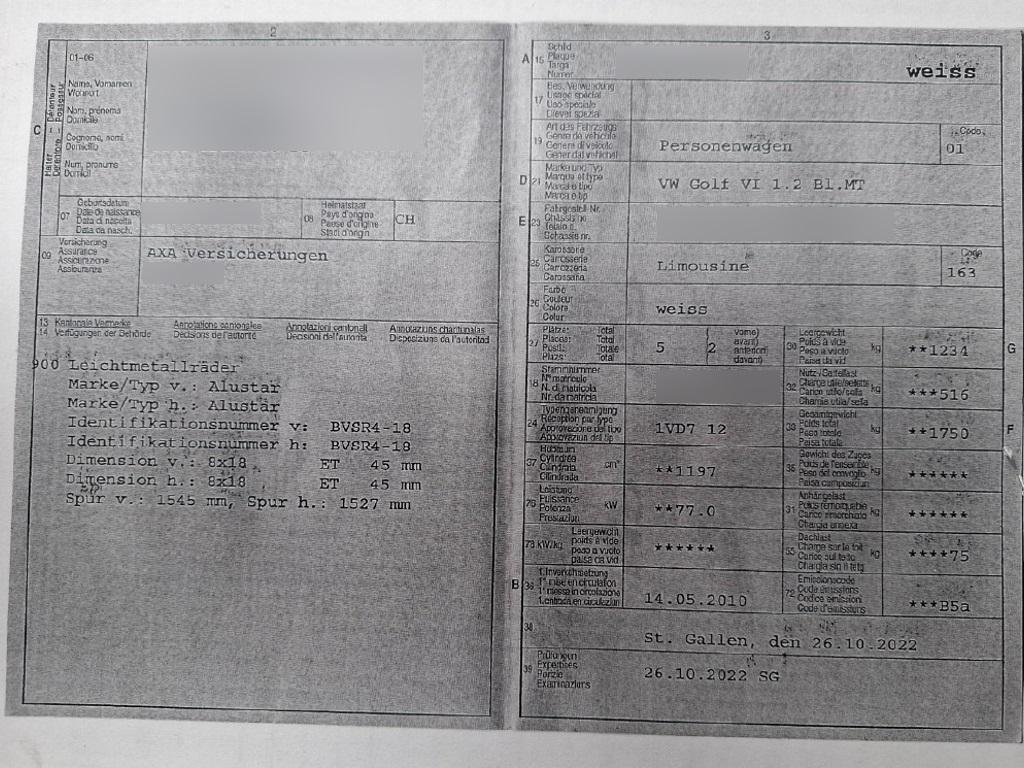 2
01-06
C
Halter Détenteur
Detentore Possessur
Name, Vornamen
Wohnort
Nom, prénoms
Domicile
Cognome, nomi
Domicilio
Num, prenums
Domicil
07 Geburtsdatum
Date de naissance
Data di nascita
Data da nasch.
08 Heimatstaat
Pays d'origine
Paese d'origine
Stadi d'origin
CH
09 Versicherung
Assurance
Assicurazione
Assicuranza
AXA Versicherungen
13 Kantonale Vermerke Annotations cantonales Annotazioni cantonali Annotaziuns chantunalas
14 Verfügungen der Behörde Décisions de l'autorité Decisioni dell'autorità Disposiziuns da l'autoritad
900 Leichtmetallräder
Marke/Typ v.: Alustar
Marke/Typ h.: Alustar
Identifikationsnummer v: BVSR4-18
Identifikationsnummer h: BVSR4-18
Dimension v.: 8x18 ET 45 mm
Dimension h.: 8x18 ET 45 mm
Spur v.: 1545 mm, Spur h.: 1527 mm
3
A 15 Schild
Plaque
Targa
Numer
weiss
17 Bes. Verwendung
Usage spécial
Uso speciale
Diever spezial
19 Art des Fahrzeugs
Genre de véhicule
Genere di veicolo
Gener dal vehichel
Personenwagen
Code
01
D 21 Marke und Typ
Marque et type
Marca e tipo
Marca e tip
VW Golf VI 1.2 Bl.MT
E 23 Fahrgestell Nr.
Châssis no
Telaio n.
Schassis nr.
25 Karosserie
Carrosserie
Carrozzeria
Carossaria
Limousine
Code
163
26 Farbe
Couleur
Colore
Colur
weiss
27 Plätze: Total
Places: Total
Posti: Totale
Plazs: Total
5
( vorne)
2 avant)
anteriori)
davant)
30 Leergewicht
Poids à vide
Peso a vuoto
Paisa da vid
kg
**1234
G
18 Stammnummer
N° matricule
N. di matricola
Nr. da matricla
32 Nutz-/Sattellast
Charge utile/sellette
Carico utile/sella
Chargia utila/sella
kg
***516
24 Typengenehmigung
Réception par type
Approvazione del tipo
Approvaziun dal tip
1VD7 12
33 Gesamtgewicht
Poids total
Peso totale
Paisa totala
kg
**1750
F
37 Hubraum
Cylindrée
Cilindrata
Cilindrada
cm³
**1197
35 Gewicht des Zuges
Poids de l'ensemble
Peso del convoglio
Paisa cumposiziun
kg
******
76 Leistung
Puissance
Potenza
Prestaziun
kW
**77.0
31 Anhängelast
Poids remorquable
Carico rimorchiato
Chargia annexa
kg
******
78 kW/kg Leergewicht
poids à vide
peso a vuoto
paisa da vid
******
55 Dachlast
Charge sur le toit
Carico sul tetto
Chargia sin il tetg
kg
****75
B 36 1. Inverkehrsetzung
1re mise en circulation
1a messa in circolazione
1. entrada en circulaziun
14.05.2010
72 Emissionscode
Code émissions
Codice emissioni
Code d'emissiuns
***B5a
38
St. Gallen, den 26.10.2022
39 Prüfungen
Expertises
Perizie
Examinaziuns
26.10.2022 SG